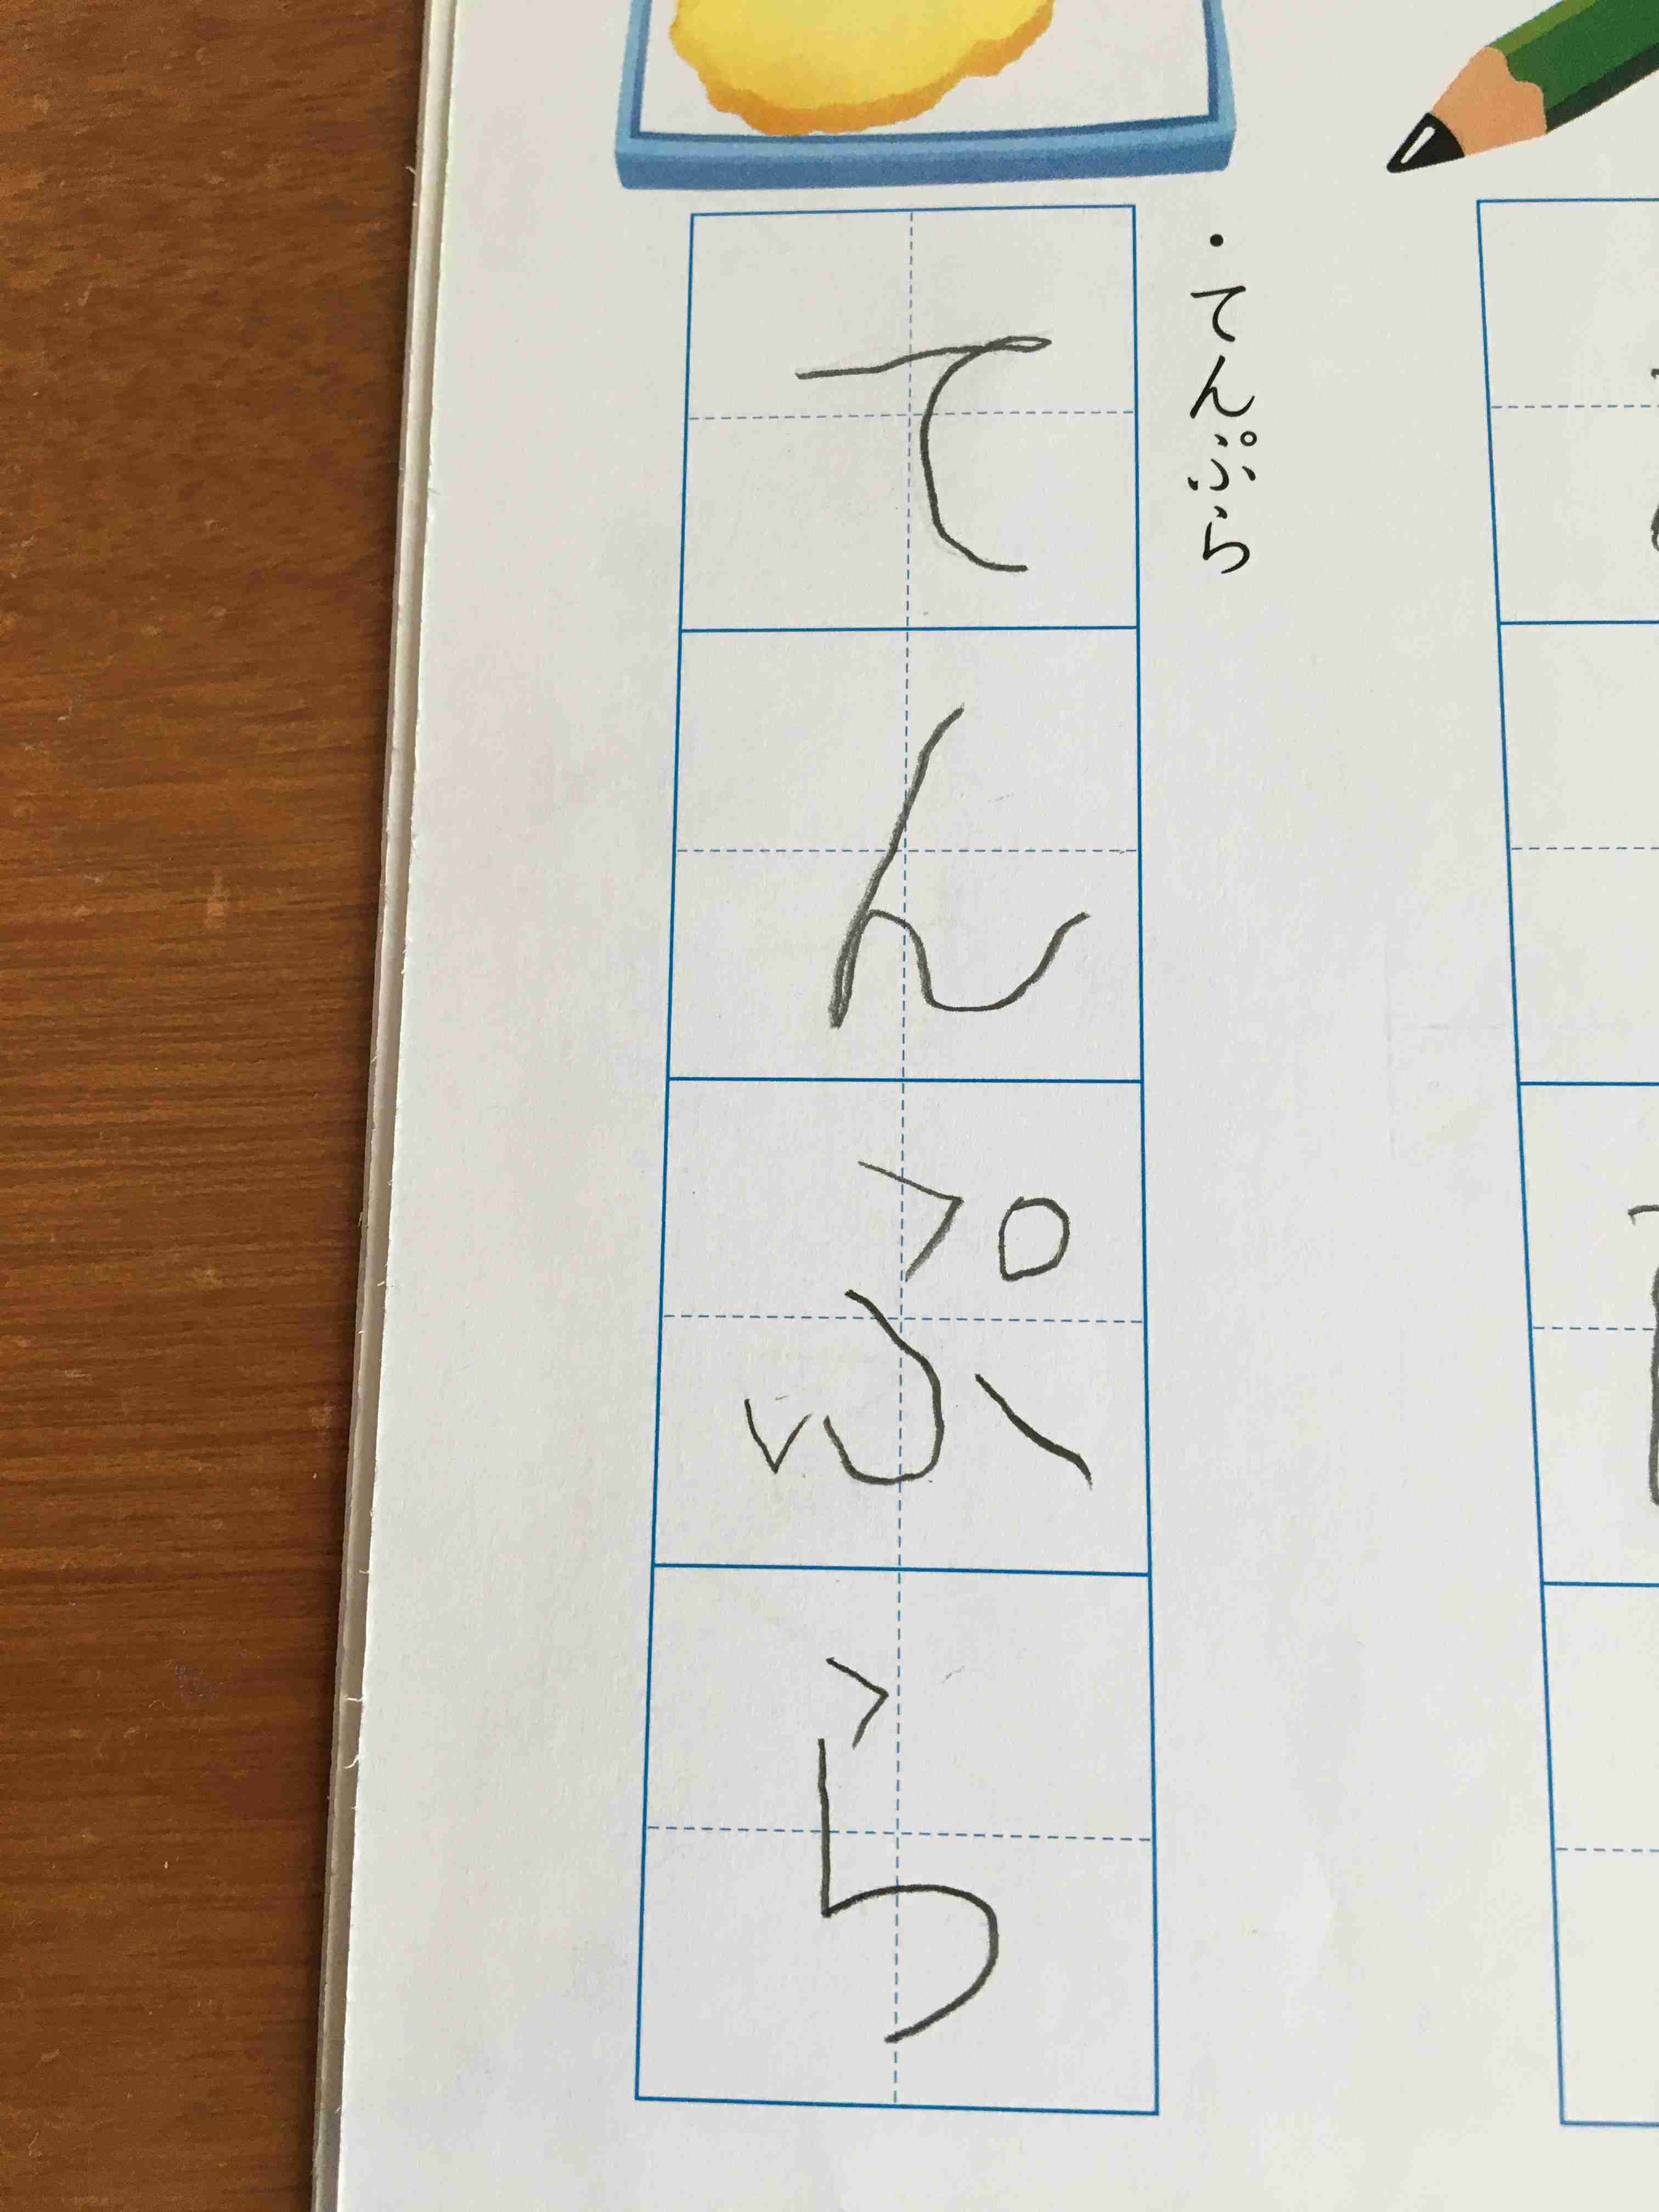 ・てんぷら
てんぷら